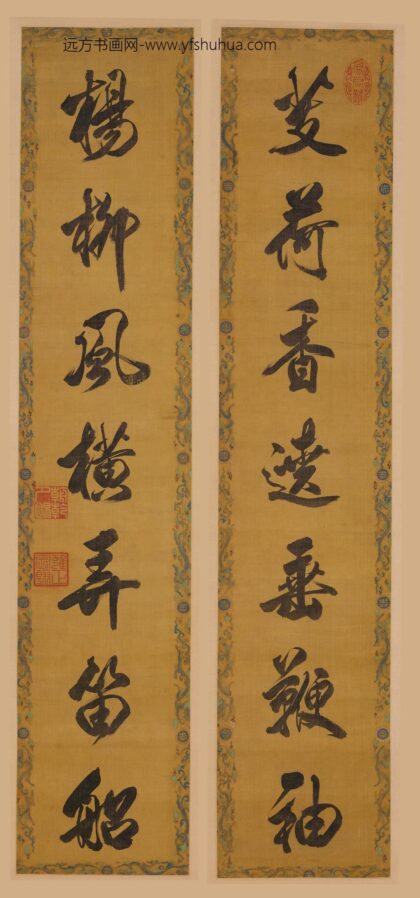 远方书画网-www.yfshuhua.com
芰荷香遶垂鞭袖
楊柳風橫弄笛船